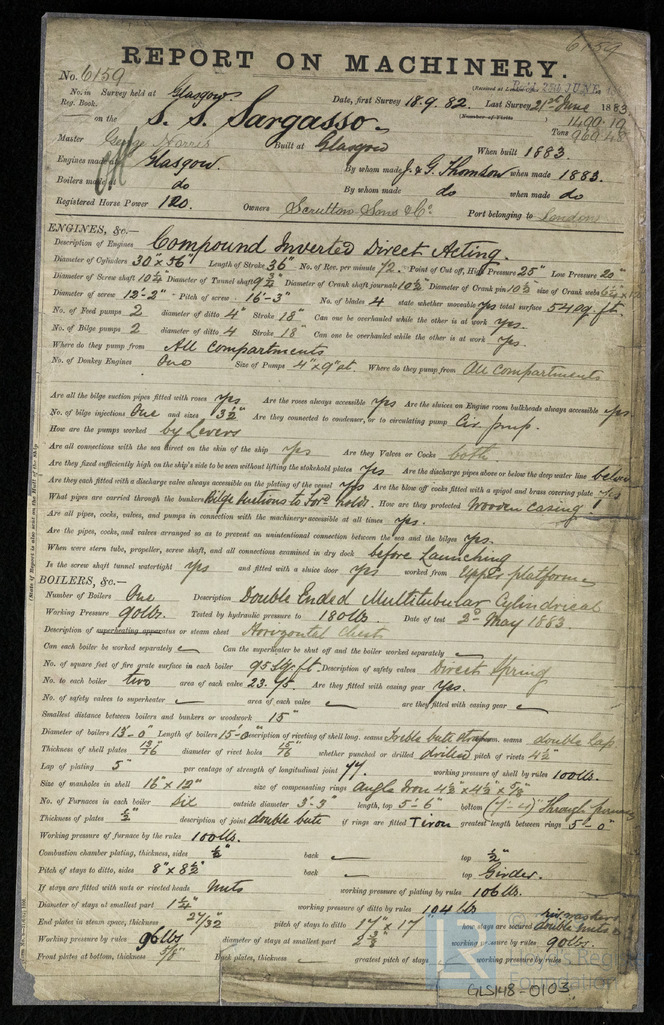 6159
REPORT ON MACHINERY.
No. 6159
No. in Reg. Book. Survey held at Glasgow Date, first Survey 18.9.82. Last Survey 21st June 1883
on the S. S. Sargasso. Tons 1499.19 969.48
Master George Norris Built at Glasgow When built 1883.
Engines made at Glasgow. By whom made J. & G. Thomson when made 1883.
Boilers made at do By whom made do when made do
Registered Horse Power 120. Owners Scrutton Sons & Co. Port belonging to London
ENGINES, &c.—
Description of Engines Compound Inverted Direct Acting.
Diameter of Cylinders 30" x 56" Length of Stroke 36" No. of Rev. per minute 72. Point of Cut off, High Pressure 25" Low Pressure 20"
Diameter of Screw shaft 10¼ Diameter of Tunnel shaft 9¾ Diameter of Crank shaft journals 10½ Diameter of Crank pin 10½ size of Crank webs
Diameter of screw 12'-2" Pitch of screw 16'-3" No. of blades 4 state whether moveable yes total surface 54 sq. ft.
No. of Feed pumps 2 diameter of ditto 4" Stroke 18" Can one be overhauled while the other is at work yes.
No. of Bilge pumps 2 diameter of ditto 4 Stroke 18" Can one be overhauled while the other is at work yes.
Where do they pump from All Compartments
No. of Donkey Engines One Size of Pumps 4" x 9" st. Where do they pump from All Compartments
Are all the bilge suction pipes fitted with roses yes Are the roses always accessible yes Are the sluices on Engine room bulkheads always accessible yes
No. of bilge injections One and sizes 3½" Are they connected to condenser, or to circulating pump Cir. pump.
How are the pumps worked by Levers
Are all connections with the sea direct on the skin of the ship yes Are they Valves or Cocks both
Are they fixed sufficiently high on the ship's side to be seen without lifting the stokehold plates yes Are the discharge pipes above or below the deep water line below
Are they each fitted with a discharge valve always accessible on the plating of the vessel yes Are the blow off cocks fitted with a spigot and brass covering plate yes
What pipes are carried through the bunkers Bilge suctions to For'd holds. How are they protected Wooden casing
Are all pipes, cocks, valves, and pumps in connection with the machinery accessible at all times yes.
Are the pipes, cocks, and valves arranged so as to prevent an unintentional connection between the sea and the bilges yes.
When were stern tube, propeller, screw shaft, and all connections examined in dry dock before Launching
Is the screw shaft tunnel watertight yes and fitted with a sluice door yes worked from Upper platform
BOILERS, &c.—
Number of Boilers One Description Double Ended Multitubular Cylindrical
Working Pressure 90 lbs. Tested by hydraulic pressure to 180 lbs. Date of test 2nd May 1883.
Description of superheating apparatus or steam chest Horizontal chest
Can each boiler be worked separately Can the superheater be shut off and the boiler worked separately
No. of square feet of fire grate surface in each boiler 95 sq. ft. Description of safety valves Direct Spring
No. to each boiler two area of each valve 23.75. Are they fitted with easing gear Yes.
No. of safety valves to superheater area of each valve are they fitted with easing gear
Smallest distance between boilers and bunkers or woodwork 15"
Diameter of boilers 13'-0" Length of boilers 15'-0" description of riveting of shell long. seams Treble butt straps circum. seams double lap
Thickness of shell plates 13/16 diameter of rivet holes 15/16 whether punched or drilled drilled pitch of rivets 4½"
Lap of plating 5" per centage of strength of longitudinal joint 77. working pressure of shell by rules 100 lbs.
Size of manholes in shell 16" x 12" size of compensating rings Angle Iron 4½ x 4½" x 5/8"
No. of Furnaces in each boiler Six outside diameter 3'-3" length, top 5'-6" bottom
Thickness of plates ½" description of joint double butt if rings are fitted T iron greatest length between rings 5'-0"
Working pressure of furnace by the rules 100 lbs.
Combustion chamber plating, thickness, sides ½" back top ½"
Pitch of stays to ditto, sides 8" x 8½" back top Girder.
If stays are fitted with nuts or riveted heads Nuts working pressure of plating by rules 106 lbs.
Diameter of stays at smallest part 1¼" working pressure of ditto by rules 104 lbs
End plates in steam space, thickness 27/32 pitch of stays to ditto 17" x 17" how stays are secured double nuts &
Working pressure by rules 96 lbs diameter of stays at smallest part working pressure by rules 90 lbs.
Front plates at bottom, thickness 5/8" Back plates, thickness greatest pitch of stays working pressure by rules
GLS148-0103